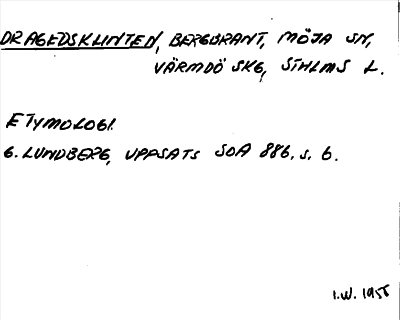 DRAGEDSKLINTEN, BERGBRANT, MÖJA SN,
VÄRMDÖ SKG, STHLMS L.
ETYMOLOGI.
G. LUNDBERG, UPPSATS SOA 886. s. 6.
I.W. 1958